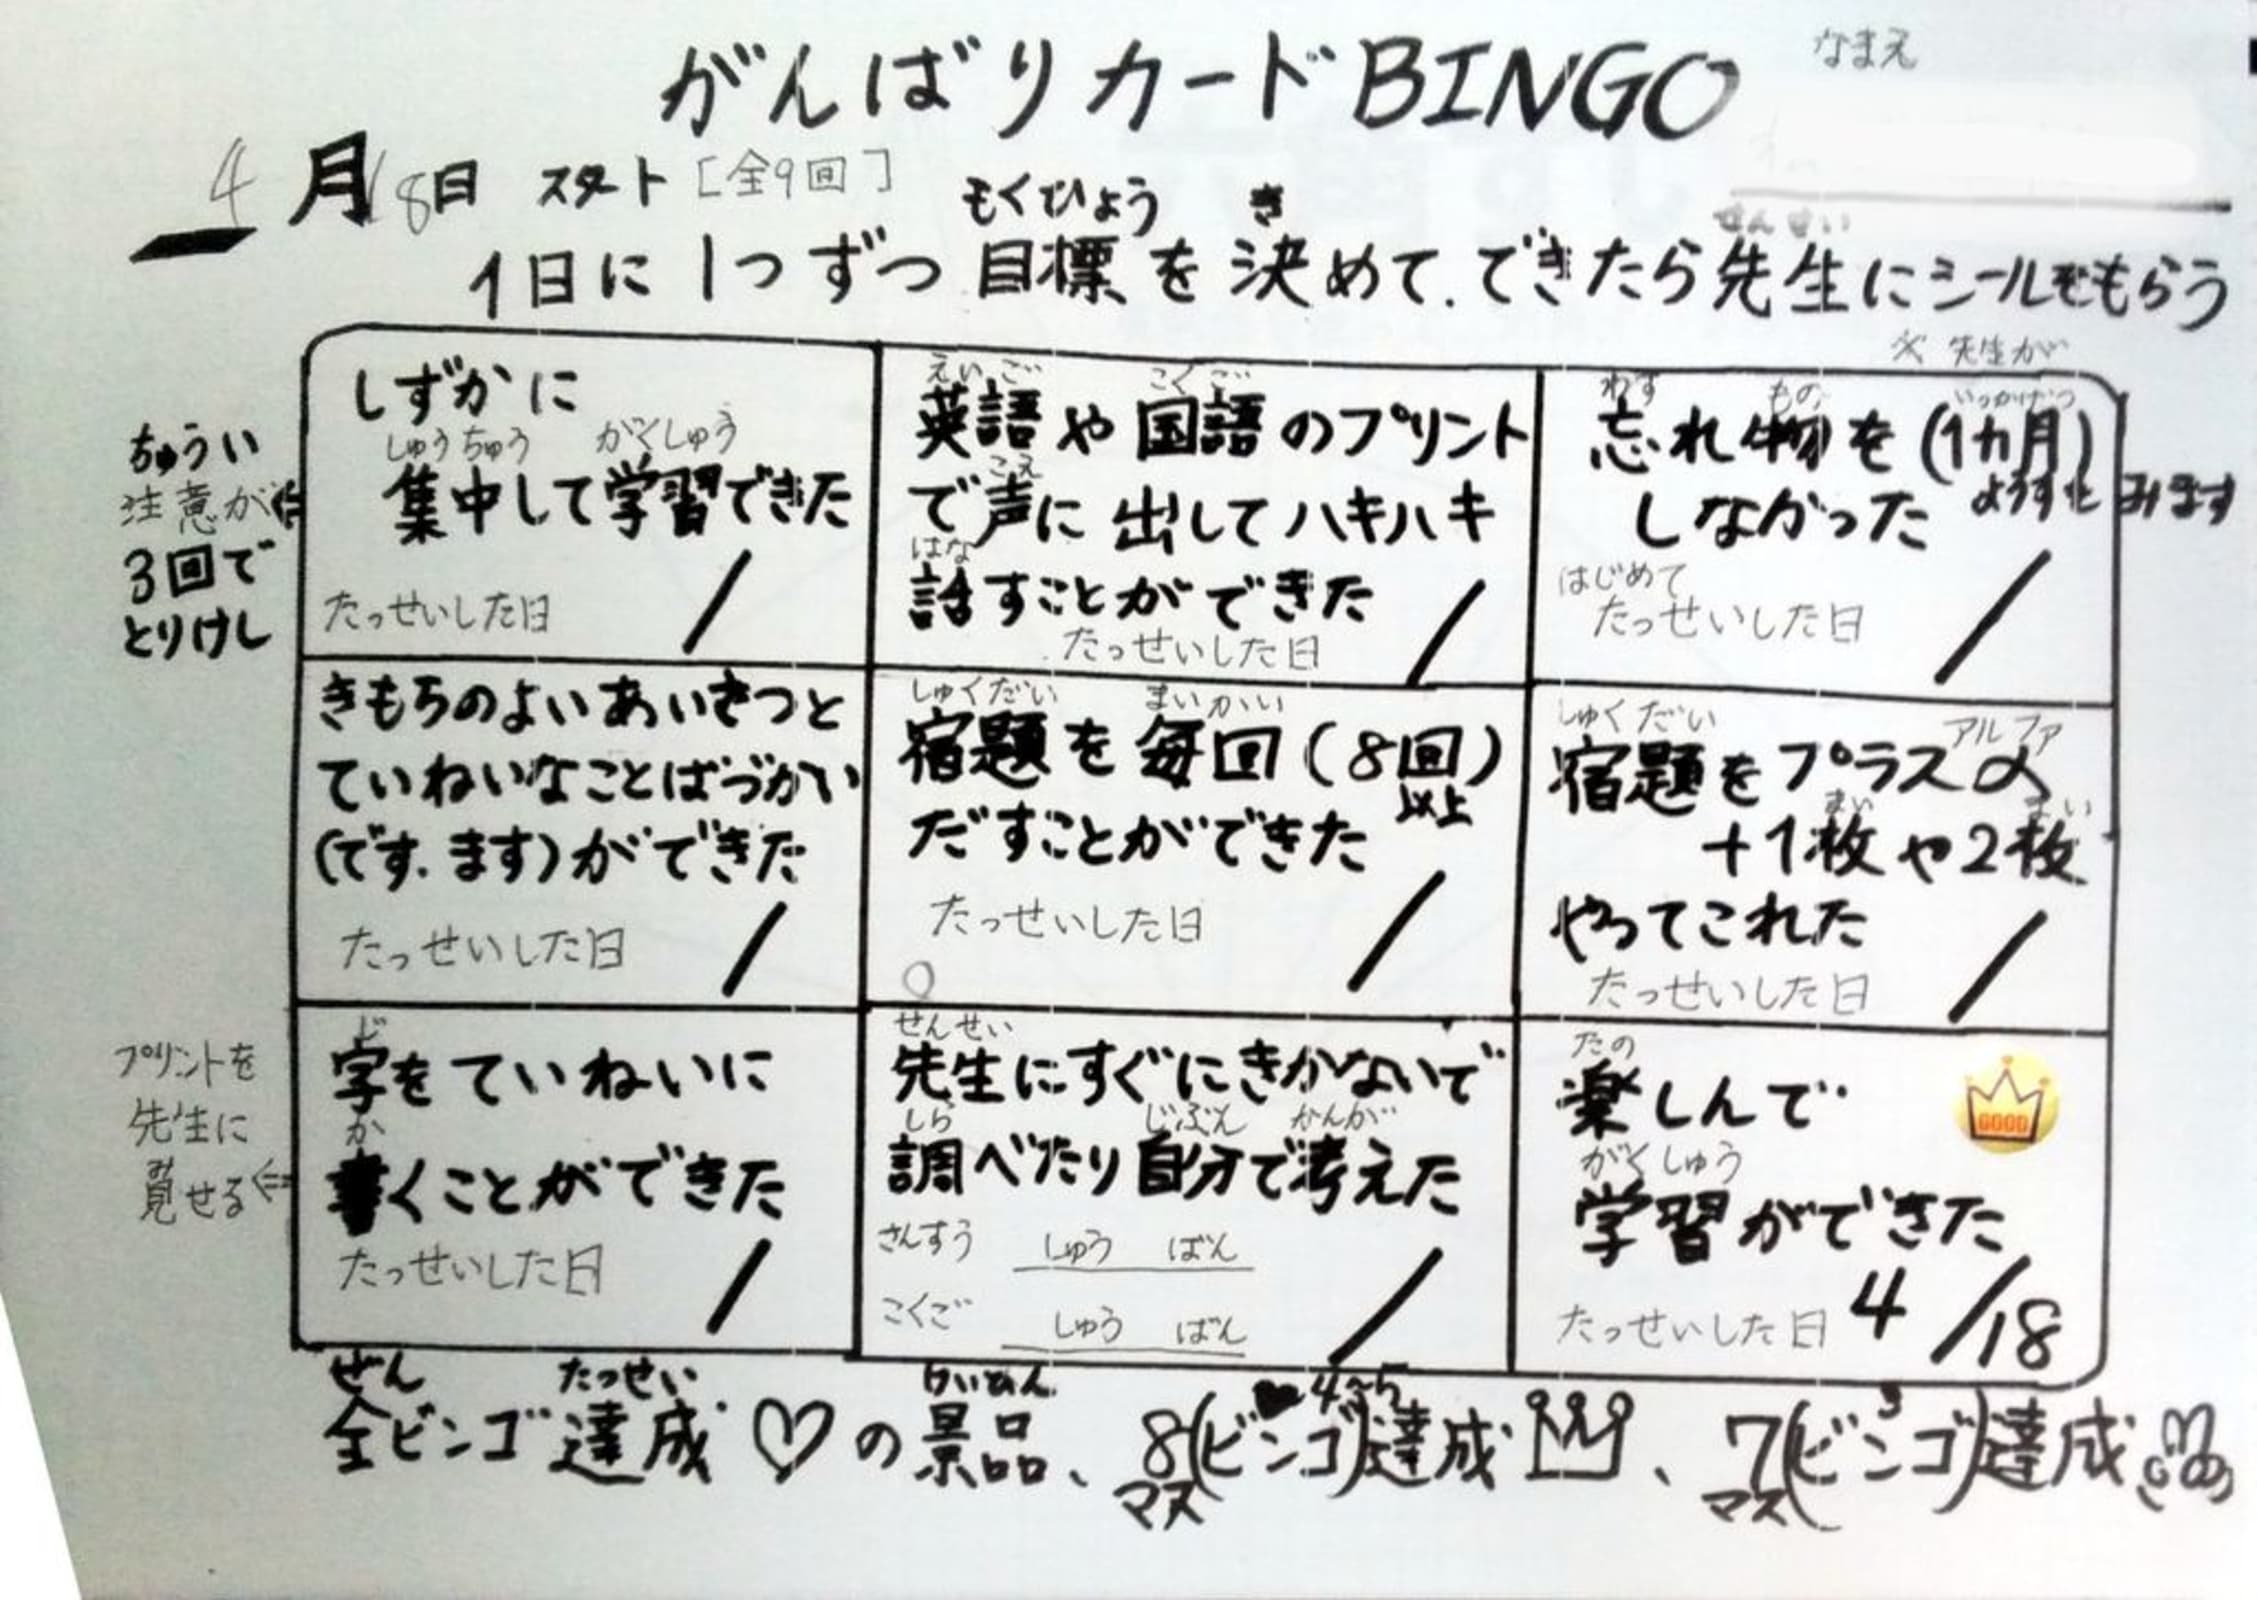 がんばりカードBINGO
なまえ
4月18日 スタート [全9回]
もくひょう き せんせい
1日に1つずつ目標を決めて.できたら先生にシールをもらう
※先生が
ようすをみます
ちゅうい
注意が⇐
3回で
とりけし
しずかに
しゅうちゅう がくしゅう
集中して学習できた
たっせいした日 /
えいご こくご
英語や国語のプリント
こえ
で声に出してハキハキ
はな
話すことができた
たっせいした日 /
わす もの いっかげつ
忘れ物を(1カ月)
しなかった
はじめて
たっせいした日 /
きもちのよいあいさつと
ていねいなことばづかい
(です.ます)ができた
たっせいした日 /
しゅくだい まいかい
宿題を毎回(8回)
以上
だすことができた
たっせいした日 /
しゅくだい アルファ
宿題をプラスα
まい まい
+1枚や2枚
やってこれた
たっせいした日 /
プリントを
先生に
み
見せる⇐
じ
字をていねいに
か
書くことができた
たっせいした日 /
せんせい
先生にすぐにきかないで
しら じぶん かんが
調べたり自分で考えた
さんすう しゅう ばん
こくご しゅう ばん
/
たの
楽しんで
GOOD
がくしゅう
学習ができた
たっせいした日 4/18
ぜん たっせい けいひん 4~5 3
全ビンゴ達成♡の景品、8(ビンゴ)達成、7(ビンゴ)達成
マス マス